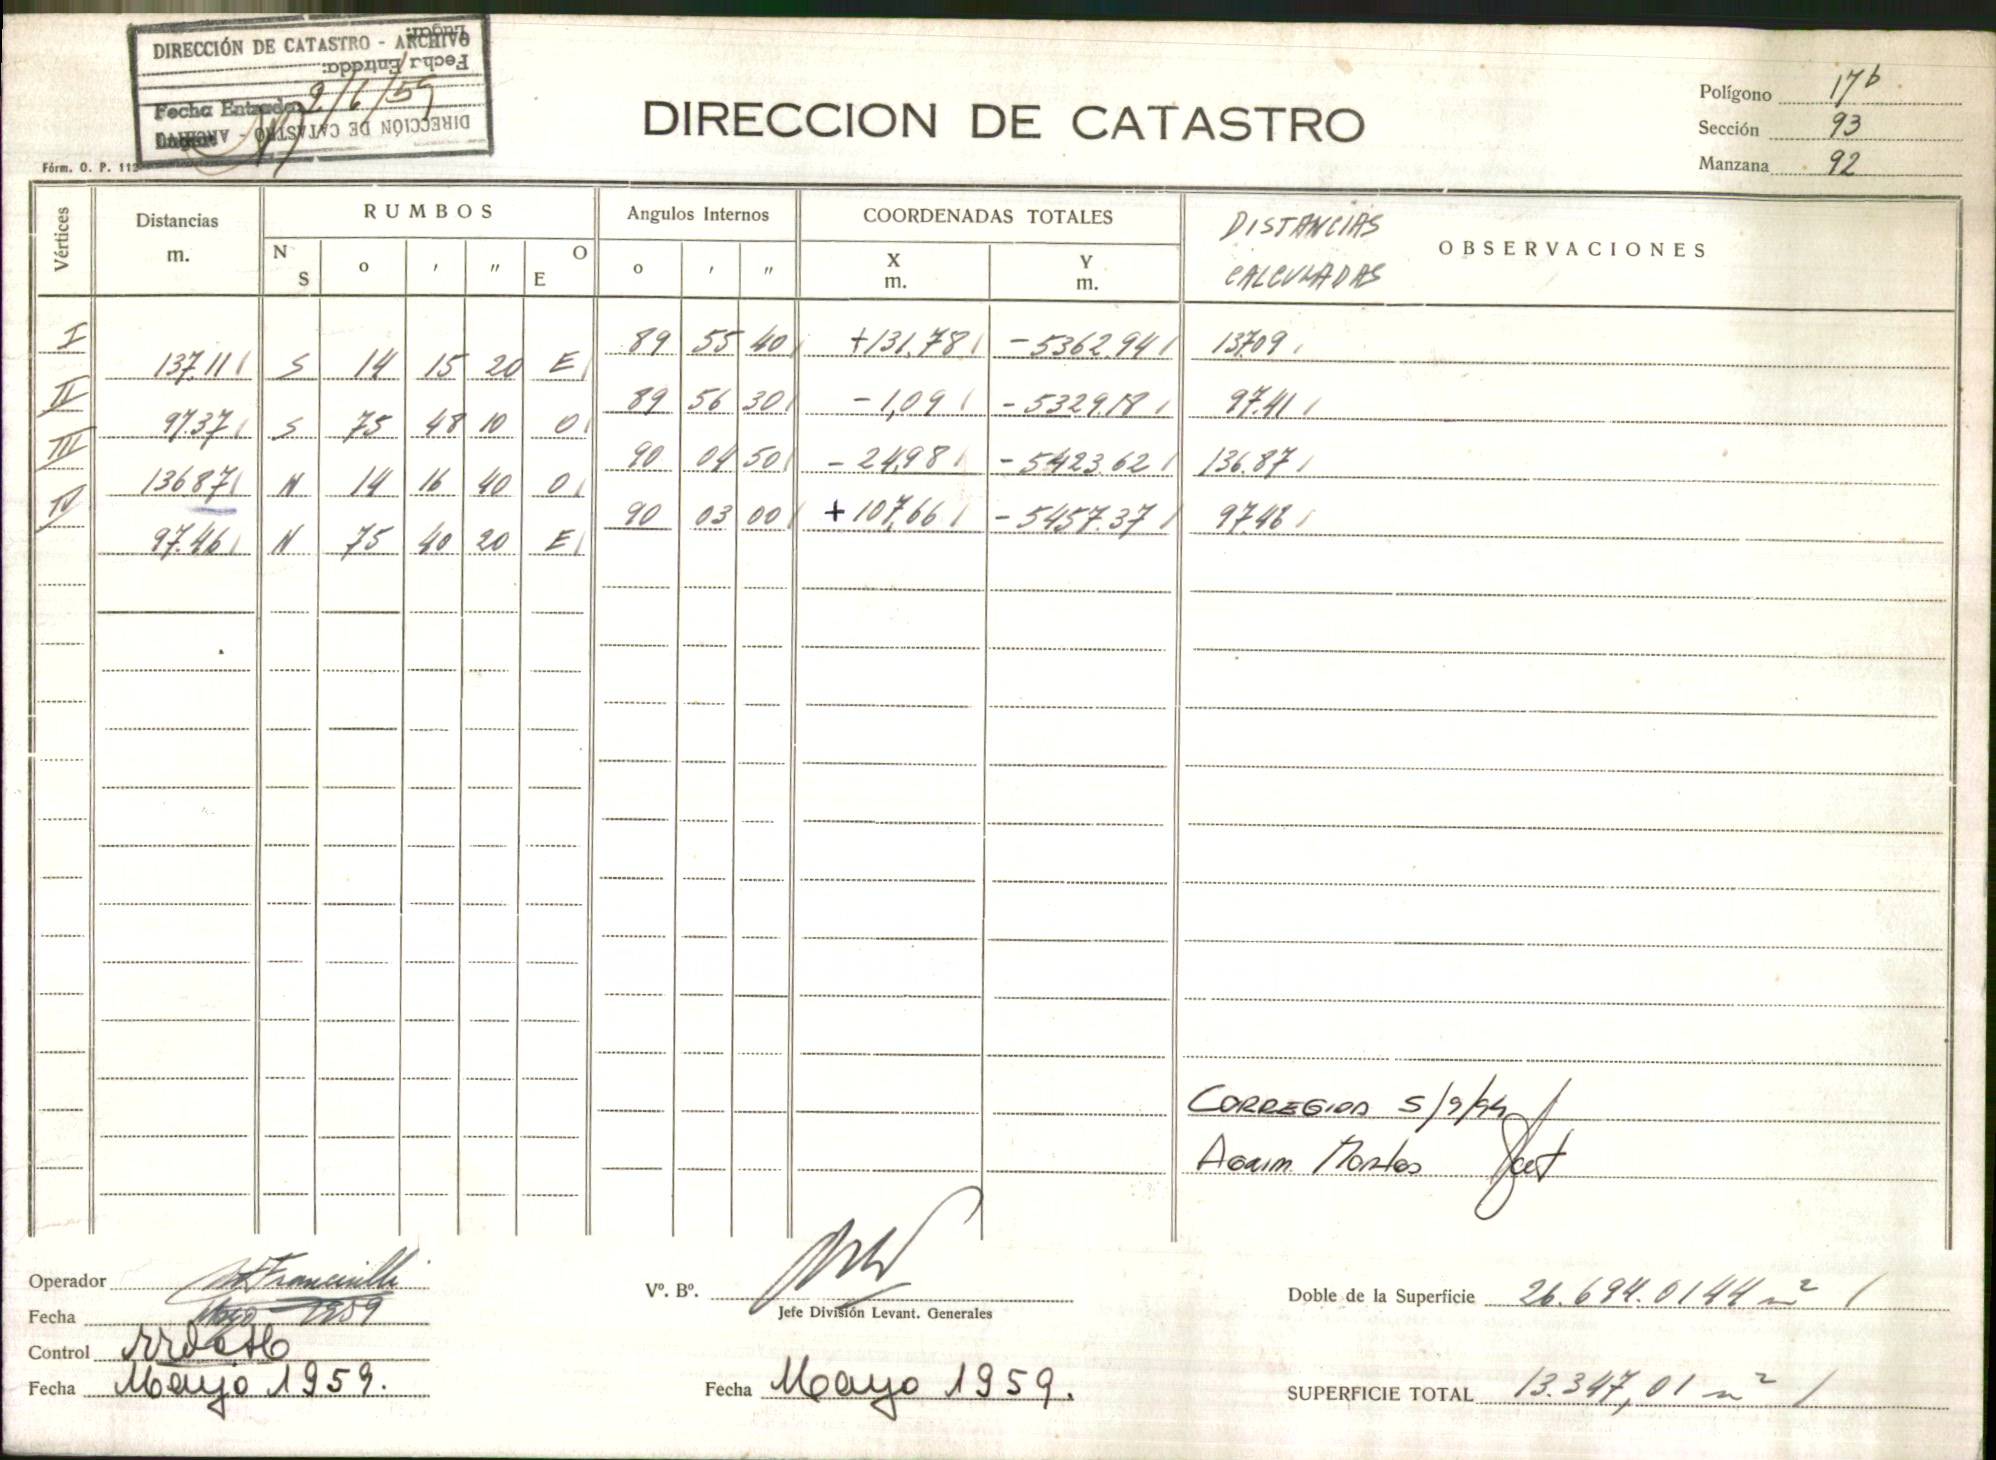 DIRECCIÓN DE CATASTRO - ARCHIVO
Fecha Entrada: 2/6/59
Lugar:
Fórm. O. P. 112
DIRECCION DE CATASTRO
Polígono 17b
Sección 93
Manzana 92
Vértices Distancias m. RUMBOS Angulos Internos COORDENADAS TOTALES DISTANCIAS CALCULADAS OBSERVACIONES
N S o ' " O E o ' " X m. Y m.
I 89 55 40 +131.78 -5362.94 137.09
137.11 S 14 15 20 E
II 89 56 30 -1,09 -5329.18 97.41
97.37 S 75 48 10 O
III 90 04 50 -24,98 -5423.62 136.87
136.87 N 14 16 40 O
IV 90 03 00 +107,66 -5457.37 97.48
97.46 N 75 40 20 E
CORREGIDO 5/9/94
Operador
Fecha Mayo 1959
Control
Fecha Mayo 1959.
Vº. Bº.
Jefe División Levant. Generales
Fecha Mayo 1959.
Doble de la Superficie 26.694.0144 m2
SUPERFICIE TOTAL 13.347,01 m2